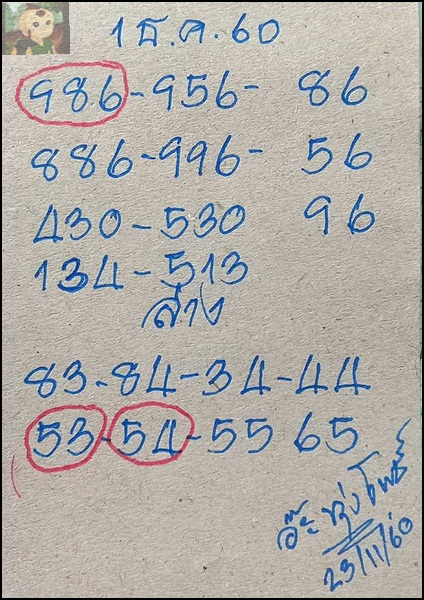 1 ธ.ค.60
986-956- 86
886-996- 56
430-530 96
134-513
ล่าง
83-84-34-44
53-54-55 65
23/11/60